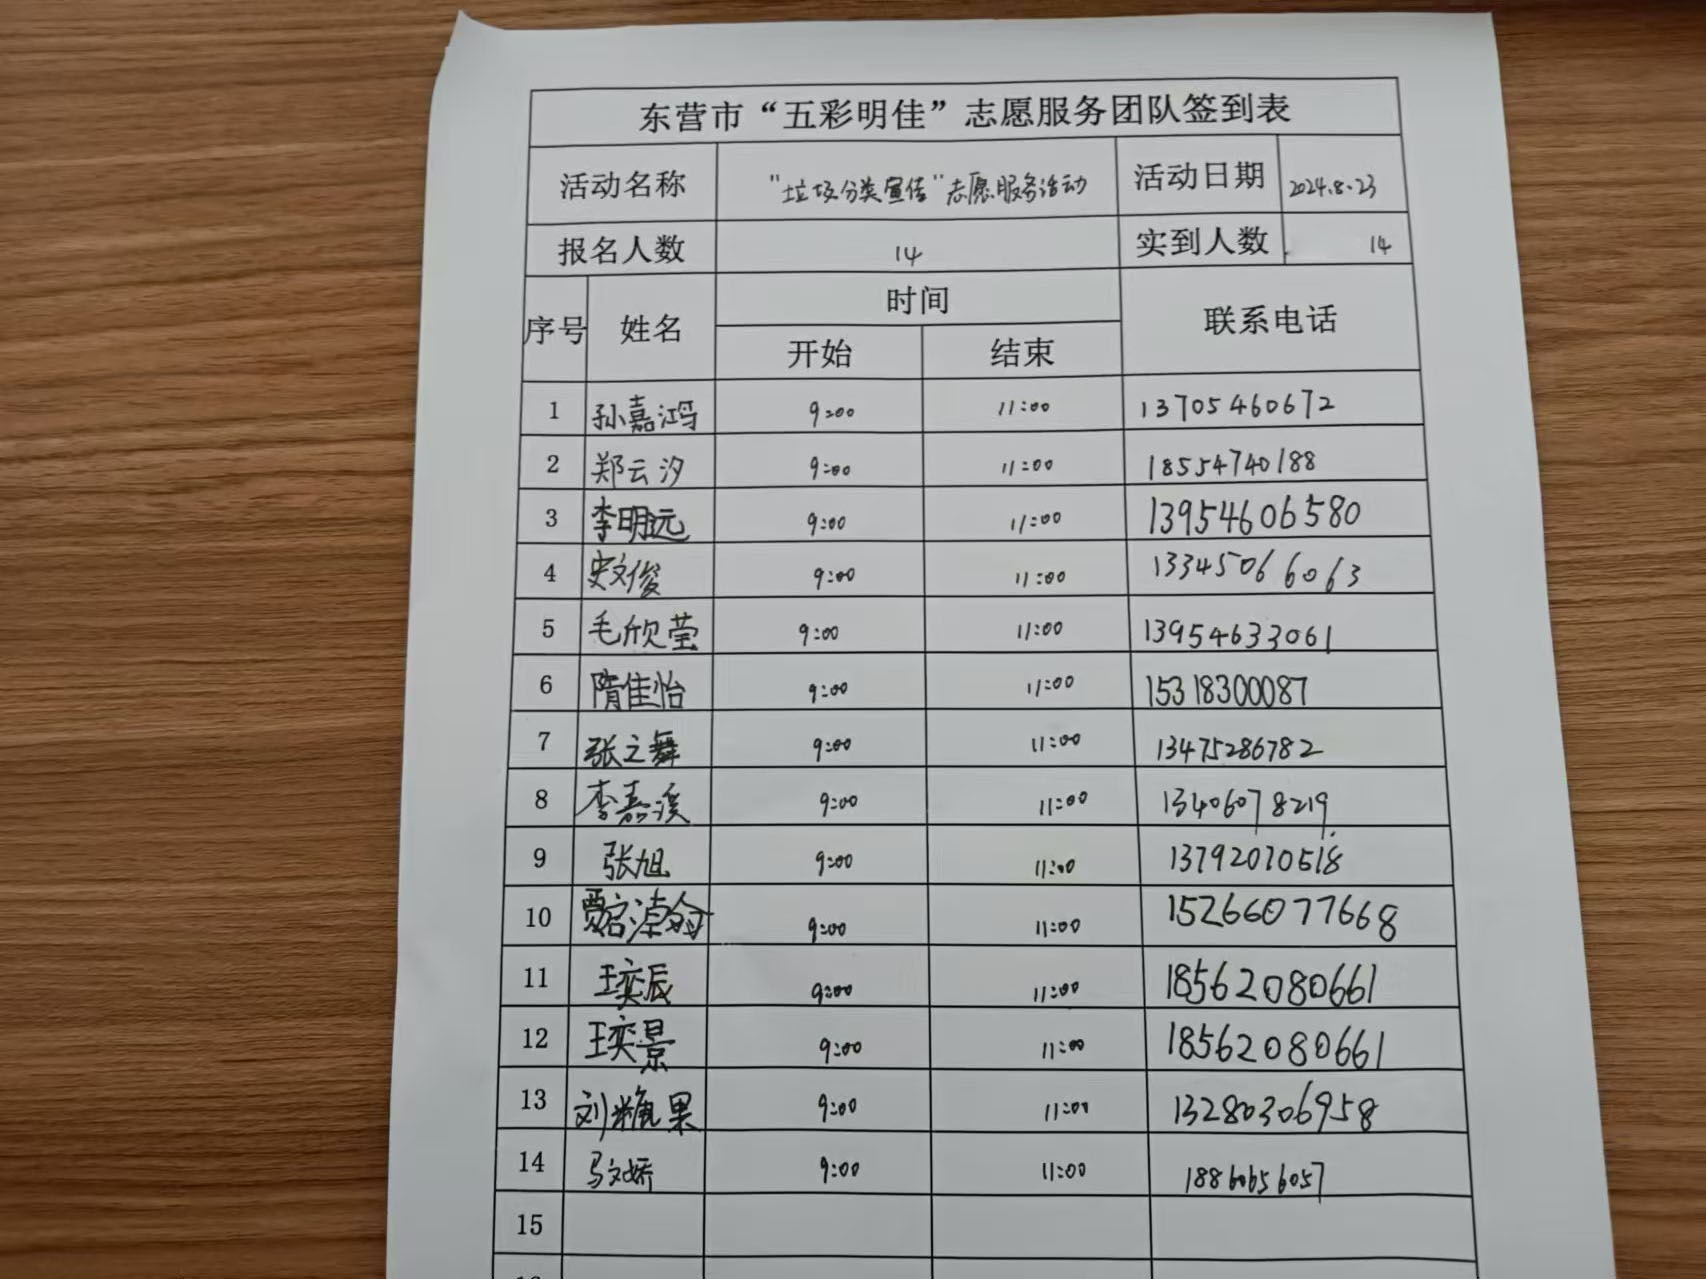 东营市“五彩明佳”志愿服务团队签到表
活动名称 “垃圾分类宣传”志愿服务活动 活动日期 2024.8.23
报名人数 14 实到人数 14
序号 姓名 时间 联系电话
开始 结束
1 孙嘉鸿 9:00 11:00 13705460672
2 郑云汐 9:00 11:00 18554740188
3 李明远 9:00 11:00 13954606580
4 史文俊 9:00 11:00 13345066063
5 毛欣莹 9:00 11:00 13954633061
6 隋佳怡 9:00 11:00 15318300087
7 张之舞 9:00 11:00 13475286782
8 李嘉溪 9:00 11:00 13406078219
9 张旭 9:00 11:00 13792070518
10 9:00 11:00 15266077668
11 王奕辰 9:00 11:00 18562080661
12 王奕景 9:00 11:00 18562080661
13 刘糖果 9:00 11:00 13280306958
14 马文娇 9:00 11:00 18860656057
15